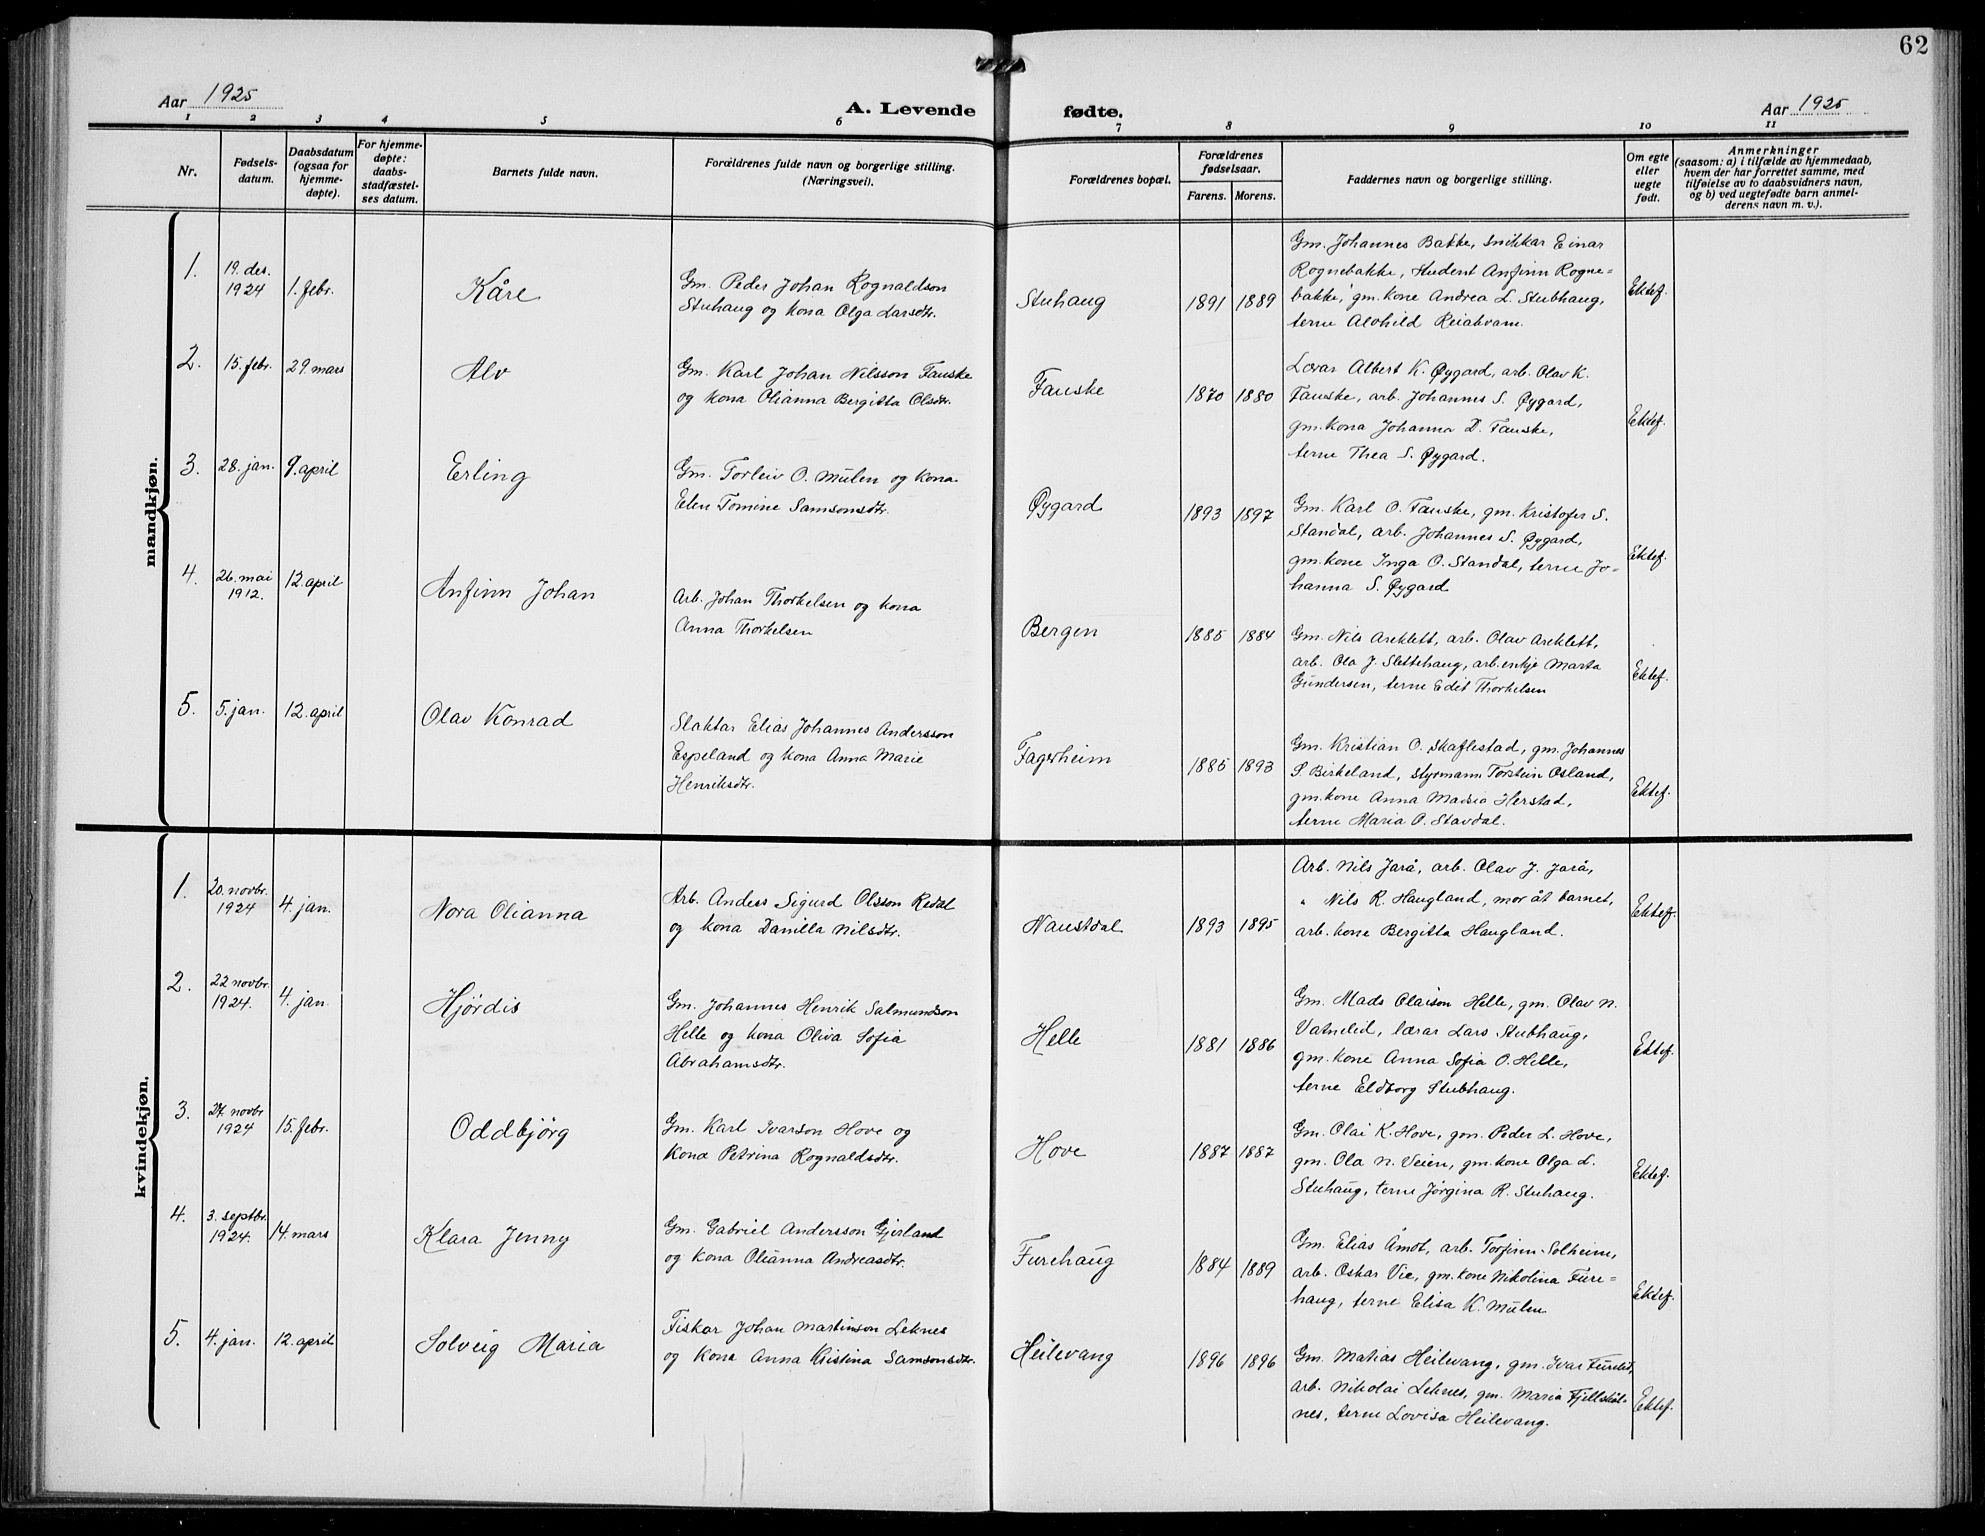 62
Aar 1925
A. Levende fødte.
Aar 1925
1 2 3 4 5 6 7 8 9 10 11
Nr.
Fødsels-
datum.
Daabsdatum
(ogsaa for
hjemme-
døpte).
For hjemme-
døpte:
daabs-
stadfæstel-
ses datum.
Barnets fulde navn.
Forældrenes fulde navn og borgerlige stilling.
(Næringsvei).
Forældrenes bopæl.
Forældrenes
fødselsaar.
Farens. Morens.
Faddernes navn og borgerlige stilling.
Om egte
eller
uegte
født.
Anmerkninger
(saasom: a) i tilfælde av hjemmedaab,
hvem der har forrettet samme, med
tilføielse av to daabsvidners navn,
og b) ved uegtefødte barn anmel-
derens navn m. v.).
mandkjøn.
1.
19. des.
1924
1. febr.
Kåre
Gm. Peder Johan Rognaldson
Stuhaug og kona Olga Larsdtr.
Stuhaug
1891 1889
Gm. Johannes Bakke, snikkar Einar
Rognebakke, student Anfinn Rogne=
bakke, gm. kone Andrea L. Stubhaug,
terne Alvhild Reiakvam.
Ektef.
2.
15. febr.
29. mars
Alv
Gm. Karl Johan Nilsson Fauske
og kona Olianna Bergitta Olsdtr.
Fauske
1870 1880
Lærar Albert K. Øygard, arb. Olav K.
Fauske, arb. Johannes S. Øygard,
gm. kona Johanna D. Fauske,
terne Thea S. Øygard.
Ektef.
3.
28. jan.
9. april
Erling
Gm. Torleiv O. Mulen og kona
Elen Tomine Samsonsdtr.
Øygard
1893 1897
Gm. Karl O. Fauske, gm. Kristofer S.
Standal, arb. Johannes S. Øygard,
gm. kone Inga O. Standal, terne Jo-
hanna S. Øygard
Ektef.
4.
26. mai
1912.
12. april
Anfinn Johan
Arb. Johan Thorkelsen og kona
Anna Thorkelsen
Bergen
1885 1884
Gm. Nils Areklett, arb. Olav Areklett,
arb. Ola J. Slettehaug, arb. enkje Marta
Gundersen, terne Edit Thorkelsen
Ektef.
5.
5. jan.
12. april
Olav Konrad
Slaktar Elias Johannes Andersson
Espeland og kona Anna Marie
Henriksdtr.
Fagerheim
1885 1893
Gm. Kristian O. Skaflestad, gm. Johannes
S Birkeland, styrmann Torstein Osland,
gm. kone Anna Madsia Herstad,
terne Maria O. Stavdal.
Ektef.
kvindekjøn.
1.
20. novbr.
1924
4. jan.
Nora Olianna
Arb. Anders Sigurd Olsson Redal
og kona Danilla Nilsdtr.
Naustdal
1893 1895
Arb. Nils Jarå, arb. Olav J. Jarå,
" Nils R. Haugland, mor åt barnet,
arb. kone Bergitta Haugland.
Ektef.
2.
22 novbr.
1924.
4. jan.
Hjördis
Gm. Johannes Henrik Salmundson
Helle og kona Oliva Sofia
Abrahamsdtr.
Helle
1881 1886
Gm. Mads Olaison Helle, gm. Olav N.
Vatnelid, lærar Lars Stubhaug,
gm. kone Anna Sofia O. Helle,
terne Eldborg Stubhaug.
Ektef.
3.
novbr
1924
15. febr.
Oddbjörg
Gm. Karl Ivarson Hove og
kona Petrina Rognaldsdtr.
Hove
1887 1887
Gm. Olai K. Hove, gm. Peder L. Hove,
gm. Ola N. Veien, gm. kone Olga L.
Stuhaug, terne Jørgina R. Stuhaug.
Ektef.
4.
3. septbr.
1924.
14. mars
Klara Jenny
Gm. Gabriel Andersson Gjerland
og kona Olianna Andreasdtr.
Furehaug
1884 1889
Gm. Elias Åmot, arb. Torfinn Solheim,
arb. Oskar Vie, gm. kone Nikolina Fure=
haug, terne Elisa K. Mulen
Ektef.
5.
4. jan.
12. april
Solveig Maria
Fiskar Johan Martinson Leknes
og kona Anna Kristina Samsonsdtr.
Heilevang
1896 1896
Gm. Matias Heilevang, gm. Ivar Furelid,
arb. Nikolai Leknes, gm. Maria
nes, terne Lovisa Heilevang.
Ektef.